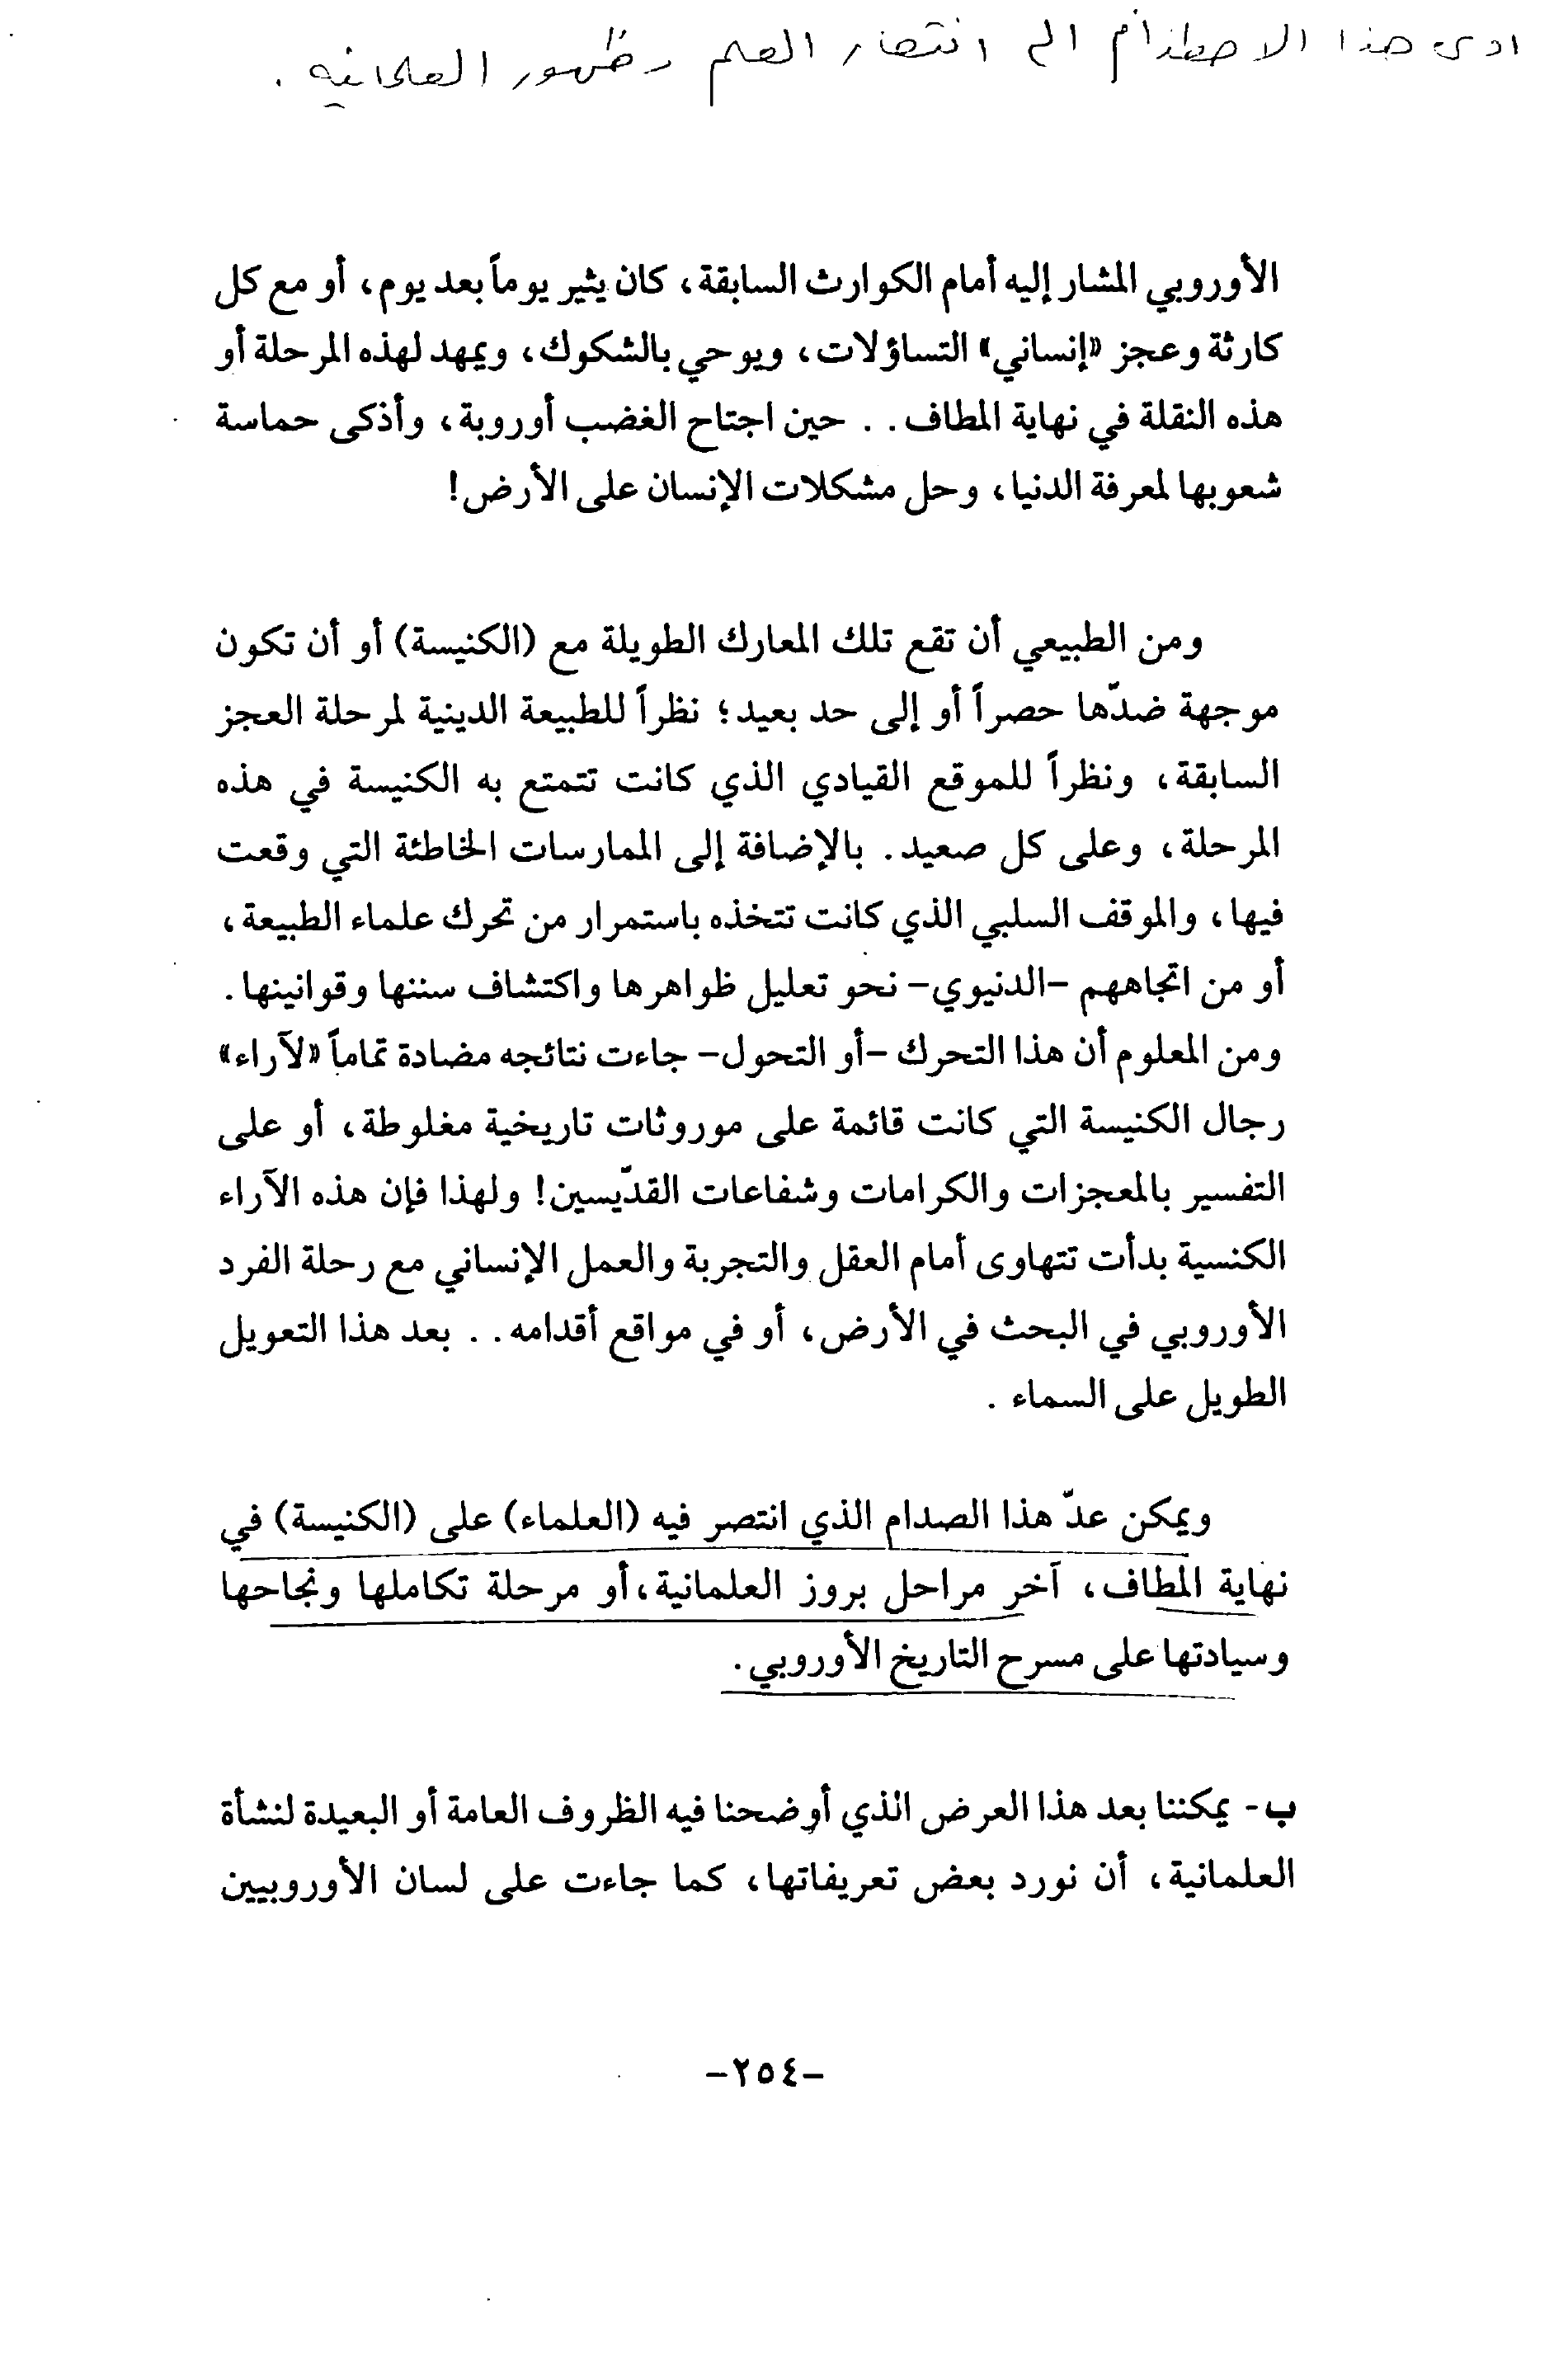 ادى هذا الاصطدام الى انتصار العلم وظهور العلمانيه .
الأوروبي المشار إليه أمام الكوارث السابقة، كان يثير يوماً بعد يوم، أو مع كل
كارثة وعجز «إنساني» التساؤلات، ويوحي بالشكوك، ويمهد لهذه المرحلة أو
هذه النقلة في نهاية المطاف . . حين اجتاح الغضب أوروبة، وأذكى حماسة
شعوبها لمعرفة الدنيا، وحل مشكلات الإنسان على الأرض!
ومن الطبيعي أن تقع تلك المعارك الطويلة مع (الكنيسة) أو أن تكون
موجهة ضدّها حصراً أو إلى حد بعيد؛ نظراً للطبيعة الدينية لمرحلة العجز
السابقة، ونظراً للموقع القيادي الذي كانت تتمتع به الكنيسة في هذه
المرحلة، وعلى كل صعيد. بالإضافة إلى الممارسات الخاطئة التي وقعت
فيها، والموقف السلبي الذي كانت تتخذه باستمرار من تحرك علماء الطبيعة،
أو من اتجاههم -الدنيوي- نحو تعليل ظواهرها واكتشاف سننها وقوانينها.
ومن المعلوم أن هذا التحرك -أو التحول- جاءت نتائجه مضادة تماماً «لآراء»
رجال الكنيسة التي كانت قائمة على موروثات تاريخية مغلوطة، أو على
التفسير بالمعجزات والكرامات وشفاعات القدّيسين! ولهذا فإن هذه الآراء
الكنسية بدأت تتهاوى أمام العقل والتجربة والعمل الإنساني مع رحلة الفرد
الأوروبي في البحث في الأرض، أو في مواقع أقدامه . . بعد هذا التعويل
الطويل على السماء .
ويمكن عدّ هذا الصدام الذي انتصر فيه (العلماء) على (الكنيسة) في
نهاية المطاف، آخر مراحل بروز العلمانية، أو مرحلة تكاملها ونجاحها
وسيادتها على مسرح التاريخ الأوروبي.
ب- يمكننا بعد هذا العرض الذي أوضحنا فيه الظروف العامة أو البعيدة لنشأة
العلمانية، أن نورد بعض تعريفاتها، كما جاءت على لسان الأوروبيين
-٢٥٤-